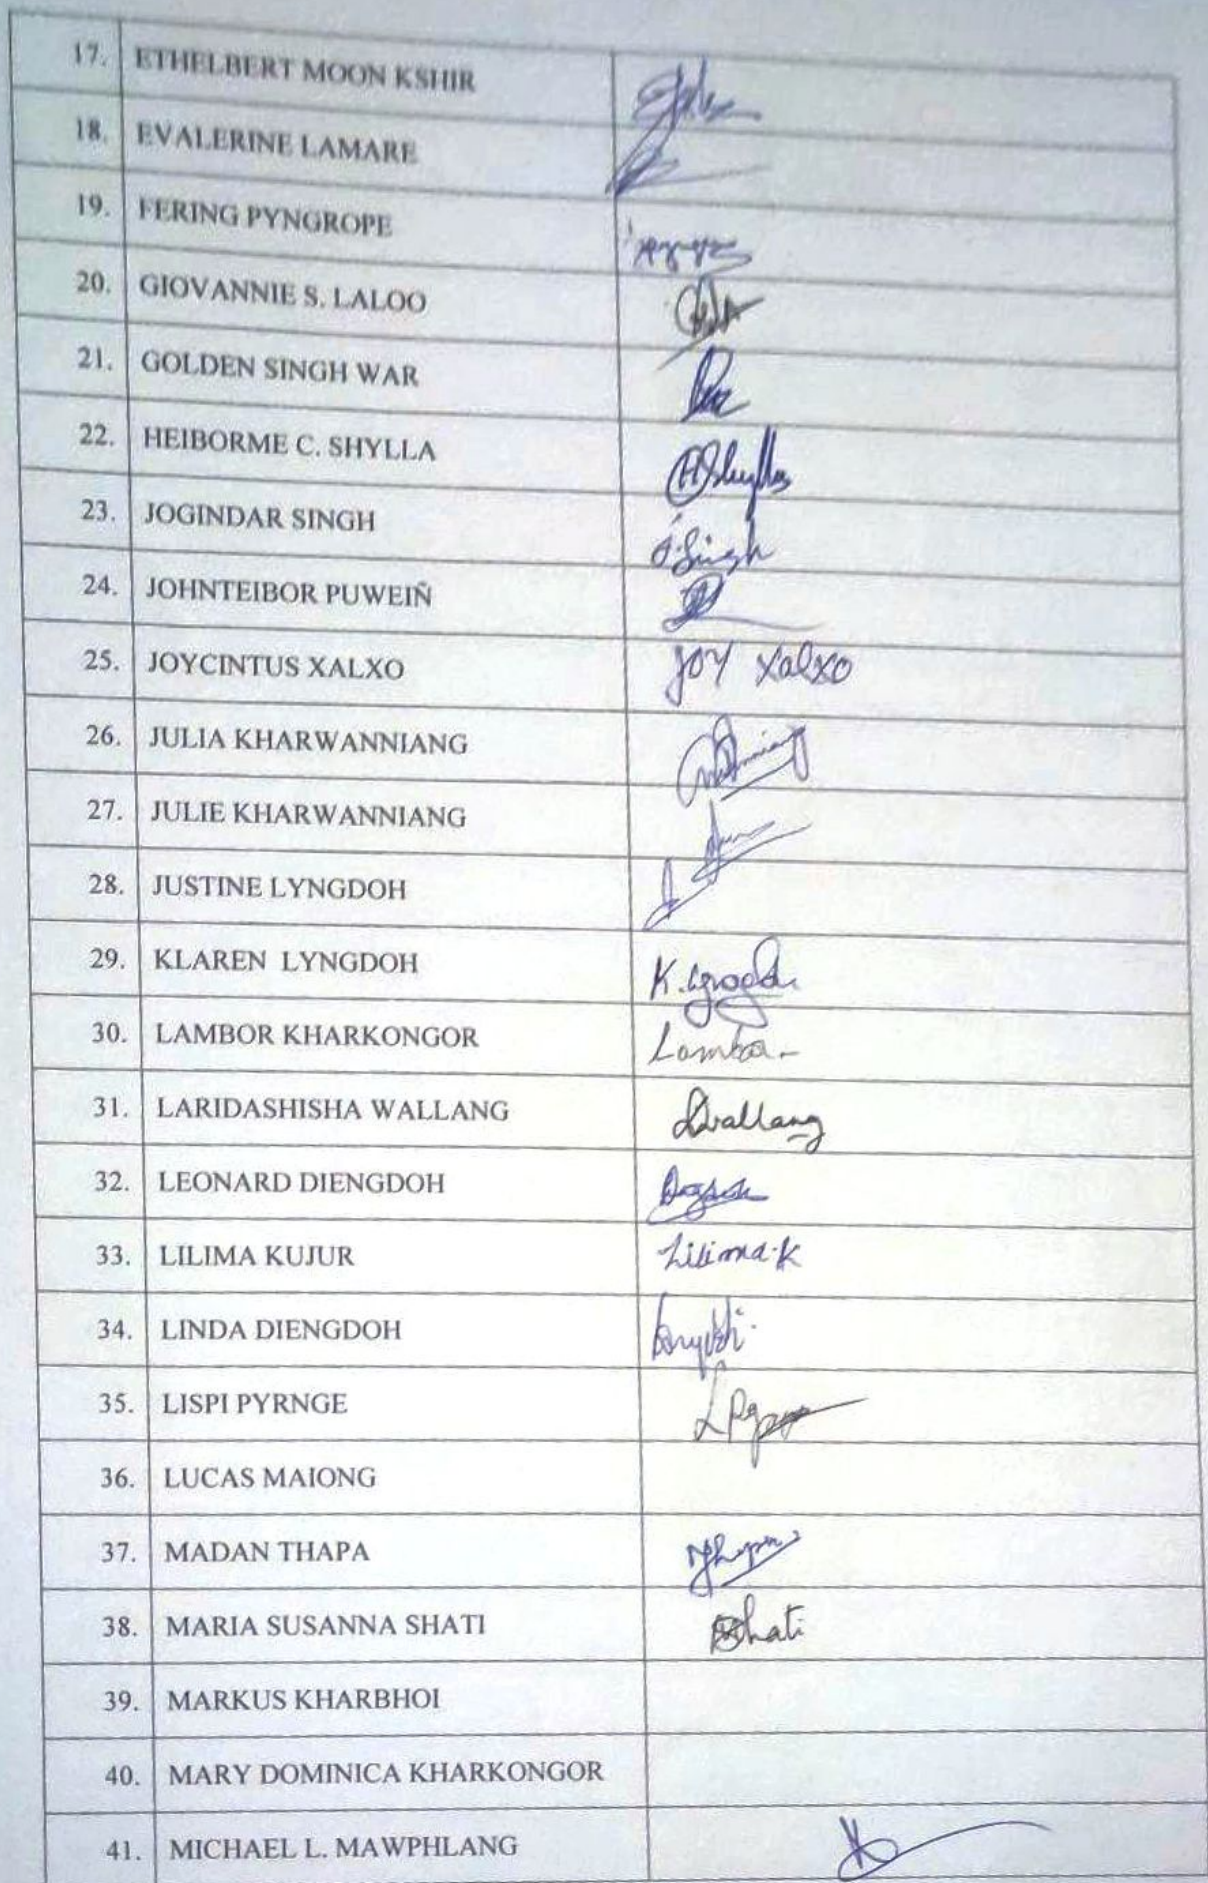 17. ETHELBERT MOON KSHIR
18. EVALERINE LAMARE
19. FERING PYNGROPE
20. GIOVANNIE S. LALOO
21. GOLDEN SINGH WAR
22. HEIBORME C. SHYLLA HShylla
23. JOGINDAR SINGH J.Singh
24. JOHNTEIBOR PUWEIÑ
25. JOYCINTUS XALXO JOY XalXO
26. JULIA KHARWANNIANG
27. JULIE KHARWANNIANG
28. JUSTINE LYNGDOH
29. KLAREN LYNGDOH
30. LAMBOR KHARKONGOR
31. LARIDASHISHA WALLANG LWallang
32. LEONARD DIENGDOH
33. LILIMA KUJUR Lilima.K
34. LINDA DIENGDOH
35. LISPI PYRNGE
36. LUCAS MAIONG
37. MADAN THAPA
38. MARIA SUSANNA SHATI
39. MARKUS KHARBHOI
40. MARY DOMINICA KHARKONGOR
41. MICHAEL L. MAWPHLANG